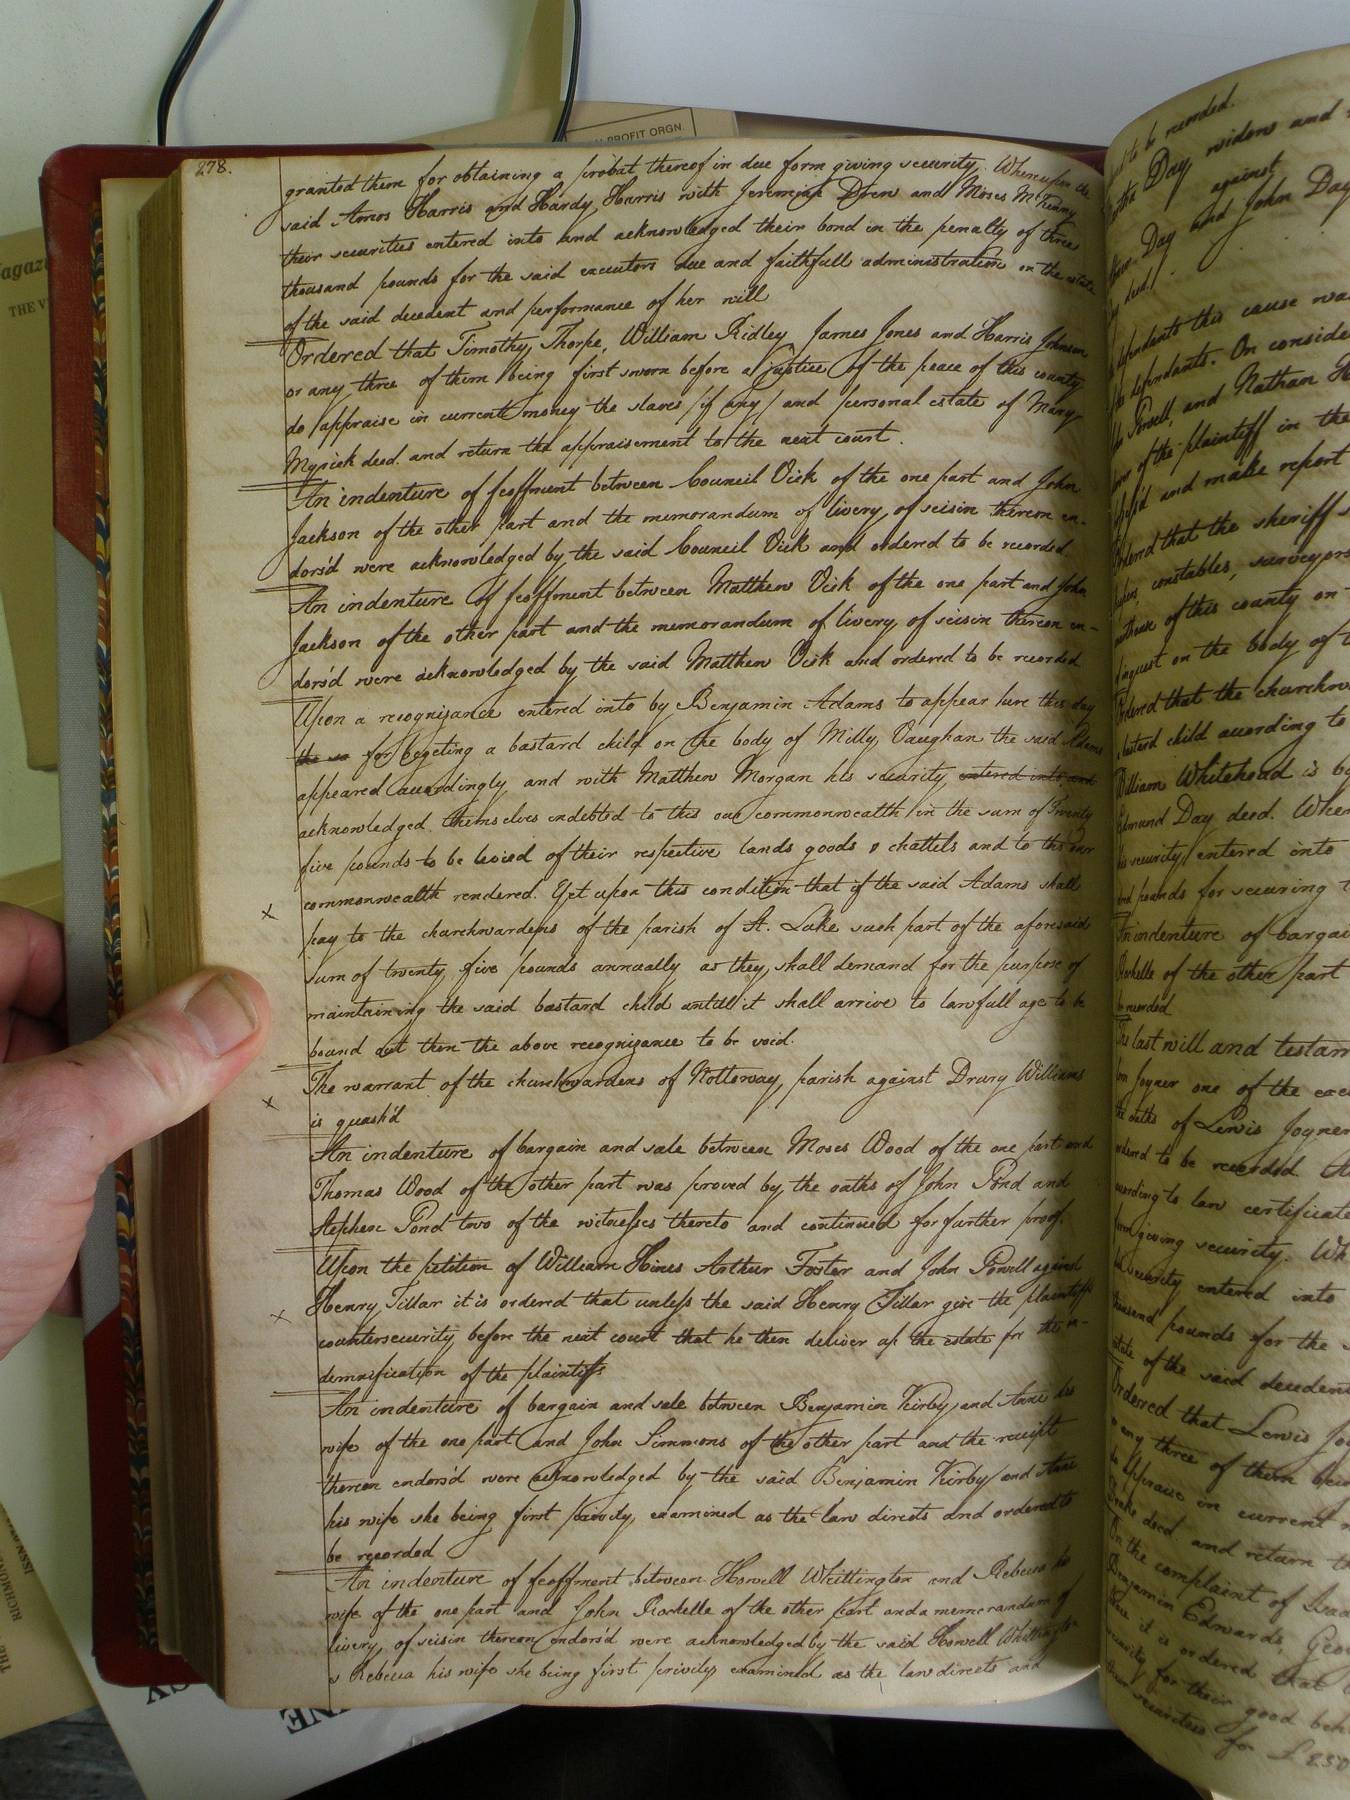 N PROFIT ORGN.
278.
granted them for obtaining a probat thereof in due form giving security. Whereupon the
said Amos Harris and Hardy Harris with Jeremiah Drew and Moses
their securities entered into and acknowledged their bond in the penalty of three
thousand pounds for the said executors due and faithfull administration on the estate
of the said decedent and performance of her will
Ordered that Timothy Thorpe, William Ridley James Jones and Harris Johnson
or any three of them being first sworn before a justice of the peace of this county
do appraise in current money the slaves /if any/ and personal estate of Mary
Myrick deed. and return the appraisement to the next court.
An indenture of feoffment between Council Vick of the one part and John
Jackson of the other part and the memorandum of livery of seisin thereon en-
dors'd were acknowledged by the said Council Vick and ordered to be recorded
An indenture of feoffment between Matthew Vick of the one part and John
Jackson of the other part and the memorandum of livery of seisin thereon en-
dors'd were acknowledged by the said Matthew Vick and ordered to be recorded
Upon a recognizance entered into by Benjamin Adams to appear here this day
the sa for begeting a bastard child on the body of Milly Vaughan the said Adams
appeared accordingly and with Matthew Morgan his security entered into and
acknowledged themselves indebted to this our commonwealth in the sum of Twenty
five pounds to be levied of their respective lands goods & chattels and to this our
commonwealth rendered. Yet upon this condition that if the said Adams shall
x
pay to the churchwardens of the parish of St. Luke such part of the aforesaid
sum of twenty five pounds annually as they shall demand for the purpose of
maintaining the said bastard child untill it shall arrive to lawfull age to be
bound out then the above recognizance to be void.
The warrant of the churchwardens of Nottoway parish against Drury Williams
x
is quash'd
An indenture of bargain and sale between Moses Wood of the one part and
Thomas Wood of the other part was proved by the oaths of John Pond and
Stephen Pond two of the witnesses thereto and continued for further proof.
Upon the petition of William Hines Arthur Foster and John Powell against
x
Henry Tillar it is ordered that unless the said Henry Tillar give the plaintiffs
countersecurity before the next court that he then deliver up the estate for the in-
demnification of the plaintiffs
An indenture of bargain and sale between Benjamin Kirby and Anne his
wife of the one part and John Simmons of the other part and the receipt
thereon endors'd were acknowledged by the said Benjamin Kirby and Anne
his wife she being first privily examined as the law directs and ordered to
be recorded
An indenture of feoffment between Howell Whittington and Rebecca his
wife of the one part and John Rochelle of the other part and a memorandum of
livery of seisin thereon endors'd were acknowledged by the said Howell Whittington
& Rebecca his wife she being first privily examined as the law directs and
to be recorded.
Day, widows and
against
Day and John Day
deed.
defendants this cause was
defendants. On conside
Powell, and Nathan
of the plaintiff in the
and make report
that the sheriff
constables, surveyors
of this county on
inquest on the body of
Ordered that the churchwar
bastard child according to
William Whitehead is
Edmund Day deed. When
security entered into
pounds for securing
An indenture of bargai
Rochelle of the other part
recorded
The last will and testam
Joyner one of the exe
the oaths of Lewis Joyner
ordered to be recorded
according to law certificate
giving security. Wh
security entered into
thousand pounds for the
estate of the said decedent
Ordered that Lewis Joy
or any three of them bein
do appraise in current
deed and return th
On the complaint of
Benjamin Edwards, Geor
it is ordered that
security for their good beh
their securities for £250
THE V
ISSN
RICHMOND